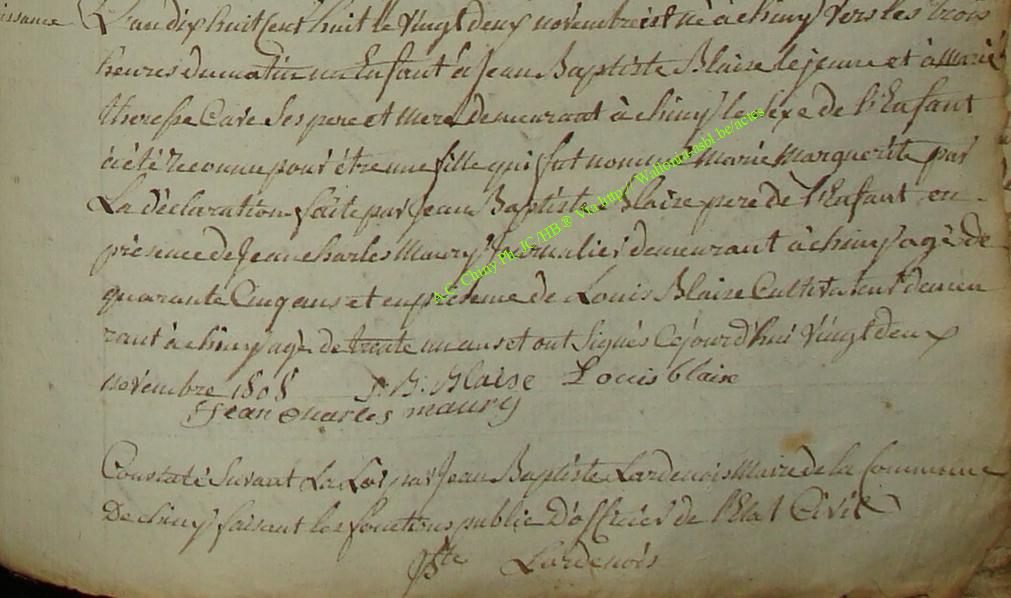 L'an dix huit cent huit le Vingt deux novembre est né à chiny vers les trois
issance
heures du matin un Enfant à Jean Baptiste Blaise le jeune et à Marie
theresse Care Ses pere et Mere demeurant à chiny le sexe de l'Enfant
à été reconnu pour être une fille qui fut nommé Marie Marguerite par
La déclaration faite par Jean Baptiste Blaise pere de l'Enfant en
présence de Jean charles Maury demeurant à chiny agé de
quarante Cinq ans et en présence de Louis Blaise Cultivateur demeu
rant à chiny agé de trente un ans et ont Signés Cejourd'hui Vingt deux
novembre 1808 J. B. Blaise Louis blaise
Jean charles maury
Constaté Suivant La Loi par Jean Baptiste Lardenois Maire de la Commune
De chiny faisant les fonctions public D'officier de l'Etat Civil
Bte Lardenois
A.C. Chiny Ph. JC HB® Via http:// Wallonia-asbl.be/actes